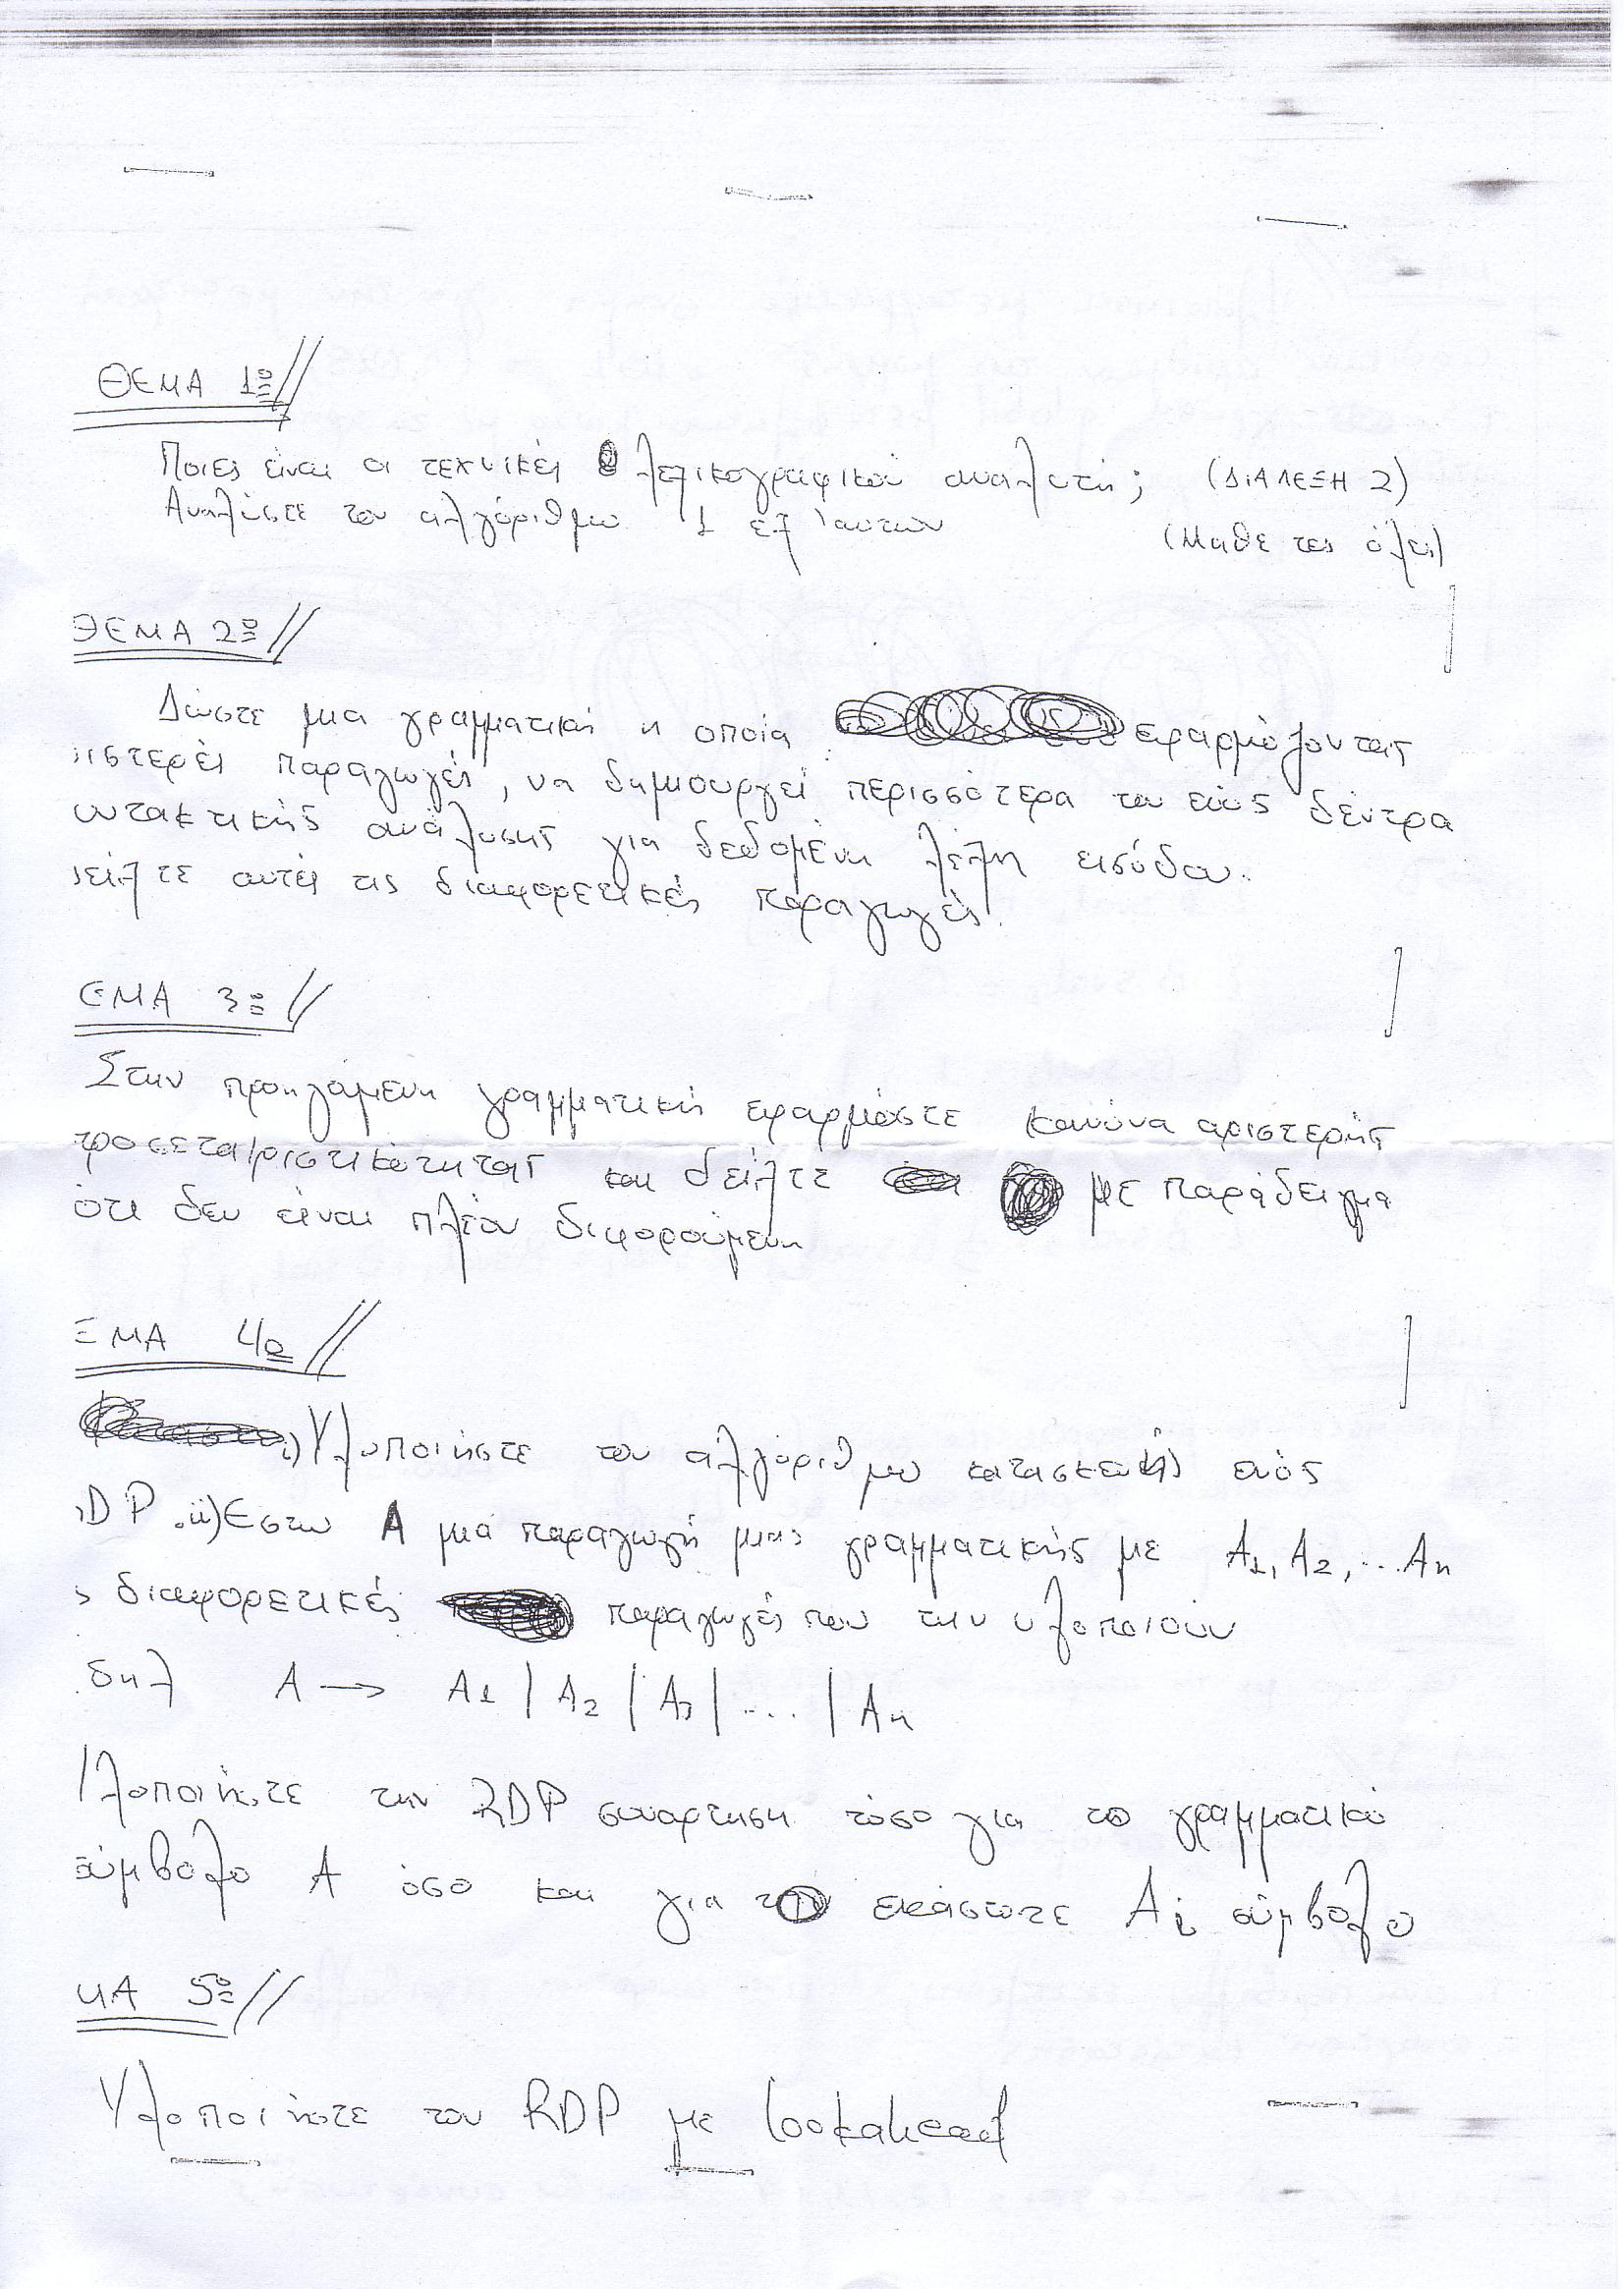 ΘΕΜΑ 1ο
Ποιες είναι οι τεχνικές λεξικογραφικού αναλυτή; (ΔΙΑΛΕΞΗ 2)
Αναλύστε τον αλγόριθμο 1 εξ'αυτών (Μαθε τες όλες)
ΘΕΜΑ 2ο
Δώστε μια γραμματική η οποία εφαρμόζοντας
ιστερές παραγωγές, να δημιουργεί περισσότερα του ενός δέντρα
υντακτικής ανάλυσης για δεδομένη λέξη εισόδου.
είξτε αυτές τις διαφορετικές παραγωγές.
ΕΜΑ 3ο
Στην προηγούμενη γραμματική εφαρμόστε κανόνα αριστερής
προσεταιριστικότητας και δείξτε με παράδειγμα
ότι δεν είναι πλέον διφορούμενη
ΕΜΑ 4ο
i) Υλοποιήστε τον αλγόριθμο κατασκευής ενός
DP. ii) Εστω Α μια παραγωγή μιας γραμματικής με Α1, Α2, ... Αn
ς διαφορετικές παραγωγές που την υλοποιούν
δηλ Α → Α1 | Α2 | Α3 | .... | Αn
λοποιήστε την RDP συνάρτηση τόσο για το γραμματικό
σύμβολο Α όσο και για το εκάστοτε Αi σύμβολο
ΜΑ 5ο
Υλοποιήστε τον RDP με lookahead